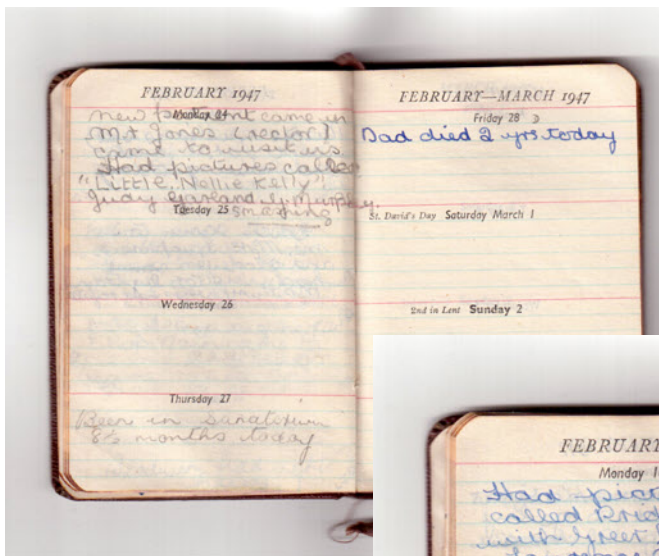 FEBRUARY 1947
Monday 24
new patient came in
Mr Jones (rector)
came to visit us
Had pictures called
"Little Nellie Kelly"
Judy Garland G. Murphy.
Tuesday 25 smashing
Wednesday 26
Thursday 27
Been in Sanatorium
8½ months today
FEBRUARY—MARCH 1947
Friday 28
Dad died 2 yrs today
St. David's Day Saturday March 1
2nd in Lent Sunday 2
FEBRUARY
Monday 1
Had pict
called
with Greer